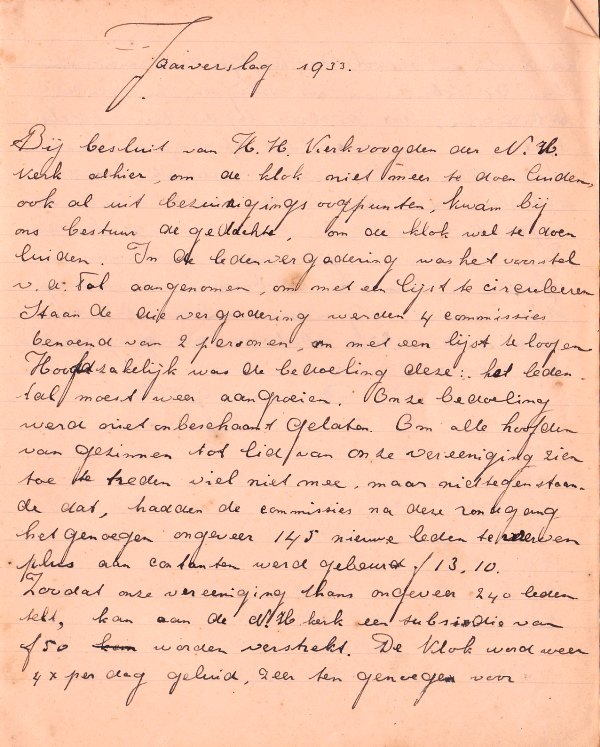 Jaarverslag 1933.
Bij besluit van H. H. Kerkvoogden der N. H.
Kerk alhier, om de klok niet meer te doen luiden,
ook al uit bezuinigings oogpunten, kwam bij
ons bestuur de gedachte, om de klok wel te doen
luiden. In de ledenvergadering was het voorstel
v. d. Tol aangenomen, om met een lijst te circuleeren
Staande die vergadering werden 4 commissies
benoemd van 2 personen, om met een lijst te loopen
Hoofdzakelijk was de bedoeling deze: het leden-
tal moest weer aangroeien. Onze bedoeling
werd niet onbeschaamt gelaten. Om alle hoofden
van gezinnen tot lid van onze vereeniging zien
toe te treden viel niet mee, maar niettegenstaan-
de dat, hadden de commissies na deze rondgang
het genoegen ongeveer 145 nieuwe leden te werven
plus aan contanten werd gebeurt f 13,10.
Zoodat onze vereeniging thans ongeveer 240 leden
telt, kan aan de N. H. kerk een subsidie van
f 50 worden verstrekt. De Klok word weer
4 x per dag geluid, zeer ten genoegen voor